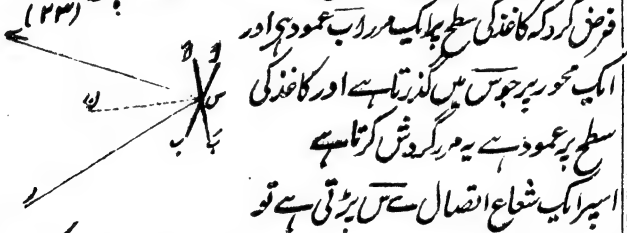 (۲۳)
فرض کرو کہ کاغذ کی سطح پر ایک مرر اَب عمود ہی اور
ایک محور پر جو س میں گذرتا ہے اور کاغذ کی
سطح پر عمود ہے یہ مرر گردش کرتا ہے
اسپر ایک شعاع اتصال ے س پڑتی ہے تو
ن
س
ب
بَ